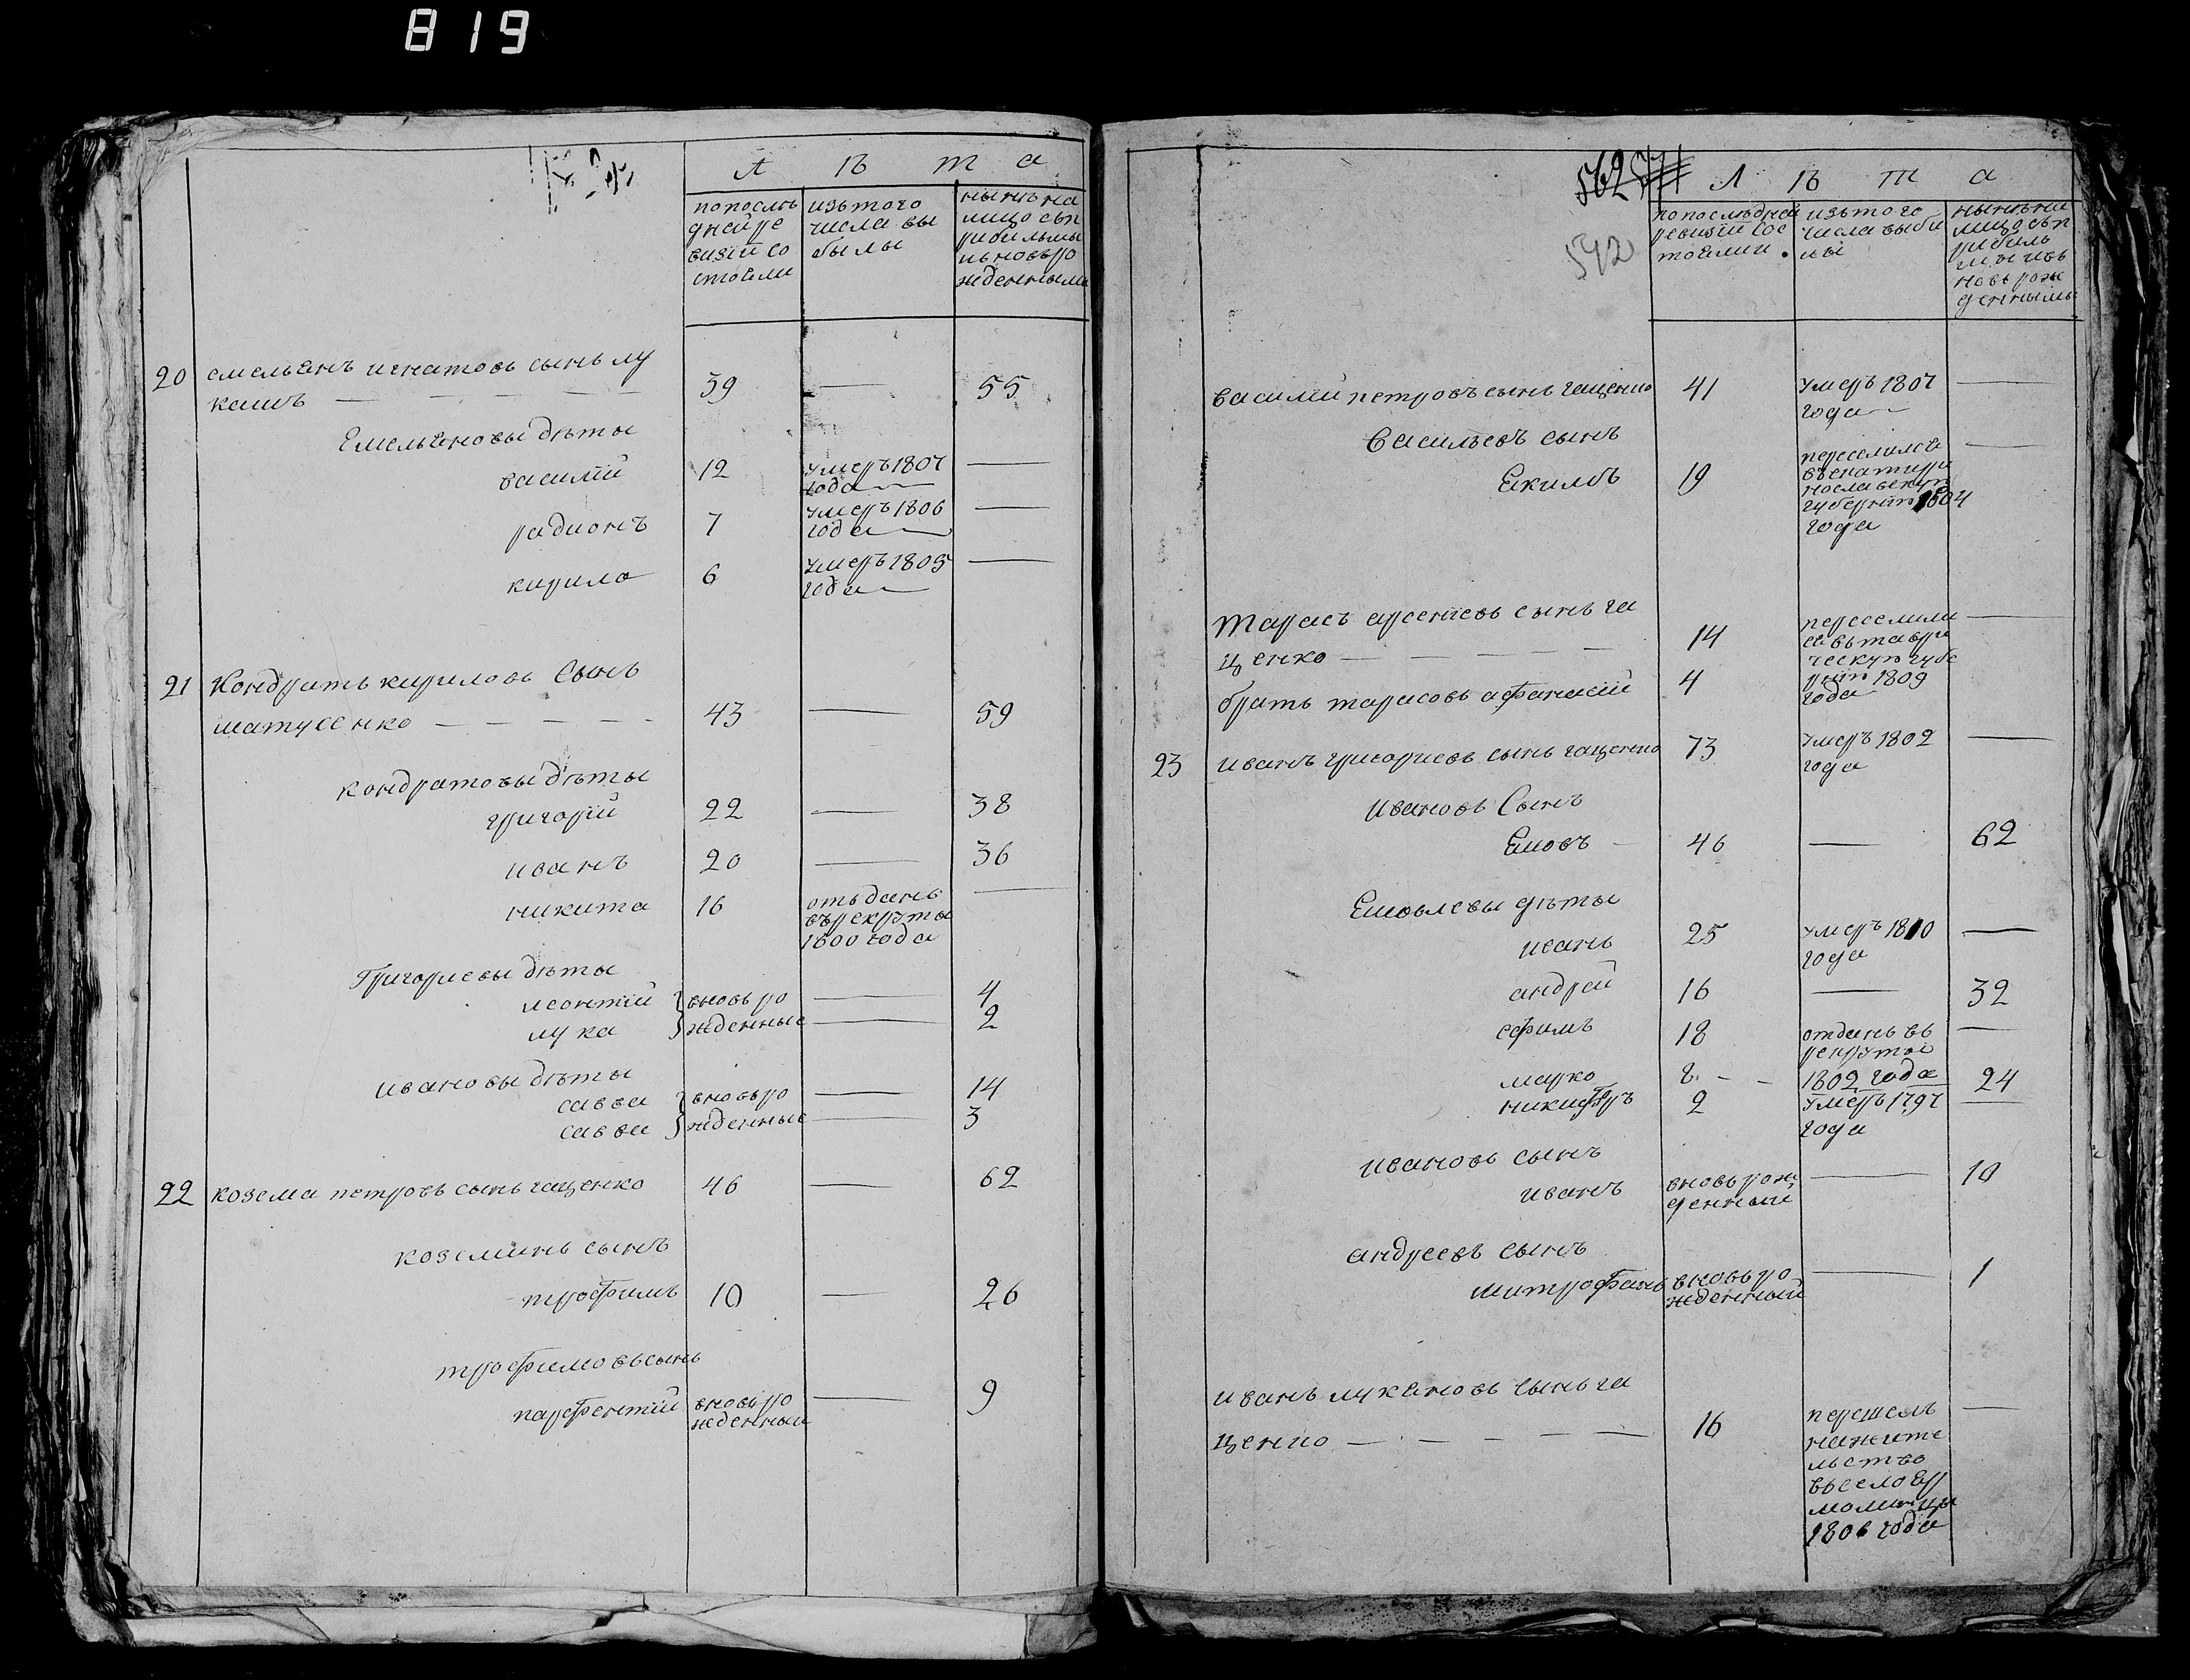 819
Л ѣ т а
попослѣ
днейре
визіи со
стояли
изътого
числа вы
былы
нынѣна
лицо съп
рибылымы
ивновьро
жденными
20 емельянъ игнатовъ сынъ лу
кашъ — — — — — 39 — 55
Емельяновы дѣты
василій 12 умеръ 1807 —
года
радионъ 7 умеръ 1806 —
года
кирило 6 умеръ 1805 —
года
21 Кондратъ кириловъ Сынъ
матусенко — — — — — 43 — 59
кондратовы дѣты
григорій 22 — 38
иванъ 20 — 36
никита 16 отъданъ —
въ рекруты
1800 года
Григориевы дѣты
леонтій вновь ро — 4
лука жденные — 2
ивановы дѣты
савва вновь ро — 14
савва жденные — 3
22 козема петровъ сынъ гащенко 46 — 62
коземинъ сынъ
трофимъ 10 — 26
трофимовъ сынъ
парфентій вновь ро — 9
жденный
562
542
Л ѣ т а
попослѣдней
ревизіи сос
тояли
изътого
числа выбы
лы
нынѣна
лицо съп
рибылы
ми ивъ
новь рож
денными
василій петровъ сынъ гащенко 41 умеръ 1807 —
года
Васильевъ сынъ
Екимъ 19 переселился —
въ екатери
нославскую
губернію 1804
года
Тарасъ арсеніевъ сынъ га
щенко — — — — — 14 переселили —
ся въ таври
ческую губе
братъ тарасовъ афанасій 4 рнію 1809
года
23 иванъ григориевъ сынъ гащенко 73 умеръ 1802 —
года
Ивановъ Сынъ
Яковъ 46 — 62
Яковлевы дѣты
иванъ 25 умеръ 1810 —
года
андрей 16 — 32
ефимъ 18 отданъ въ —
рекруты
марко 8 — — 1802 года 24
никифръ 2 умеръ 1797 —
года
ивановъ сынъ
иванъ вновь рож — 10
денный
андреевъ сынъ
митрофанъ вновь ро — 1
жденный
иванъ лукяновъ сынъ га
щенко — — — — — 16 перешелъ —
нажите
льство
въ село Ер
молинцы
1806 года